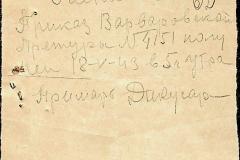 Приказ Варваровской
Претуры № 4151 полу
чен 18-V-43 в 5ч утра
Примарь Дикусар